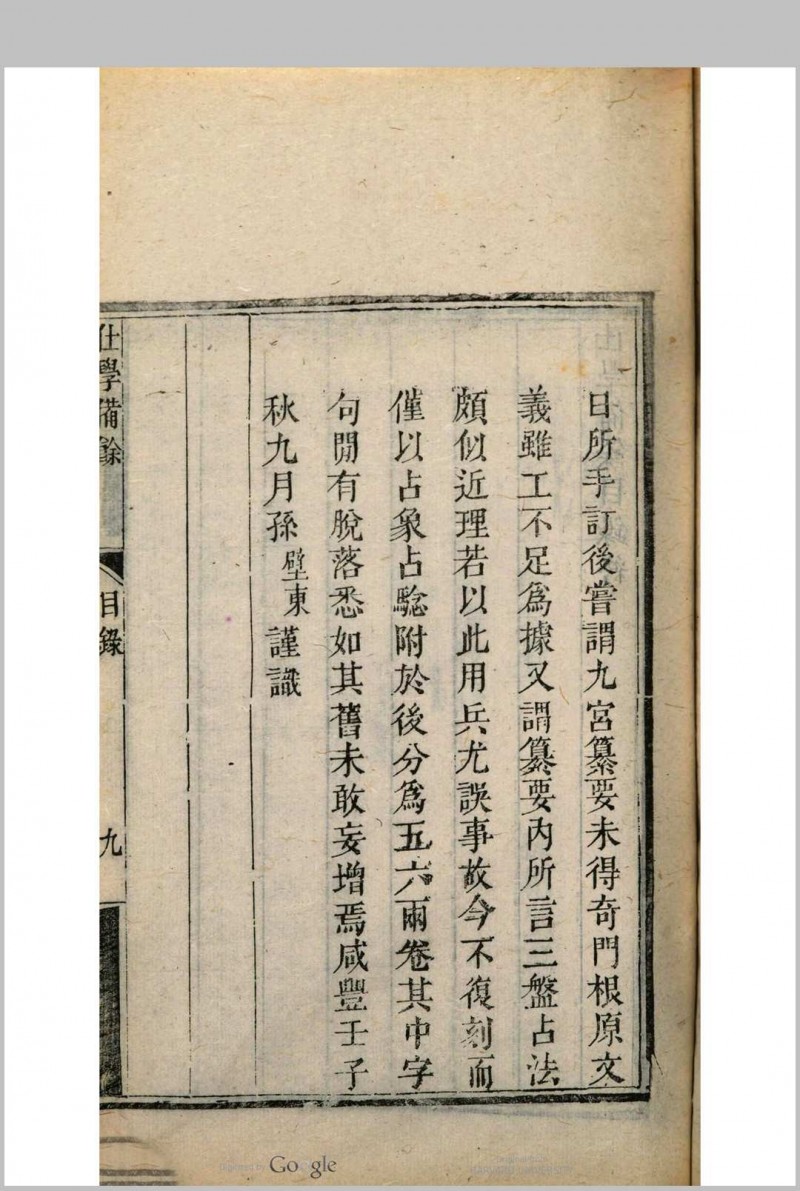 日所手訂後嘗謂九宮纂要未得奇門根原文
義雖工不足爲據又謂纂要內所言三盤占法
頗似近理若以此用兵尤誤事故今不復刻而
僅以占象占騐附於後分爲五六兩卷其中字
句閒有脫落悉如其舊未敢妄增焉咸豐壬子
秋九月孫壁東謹識
仕學備餘
目錄
九
Google